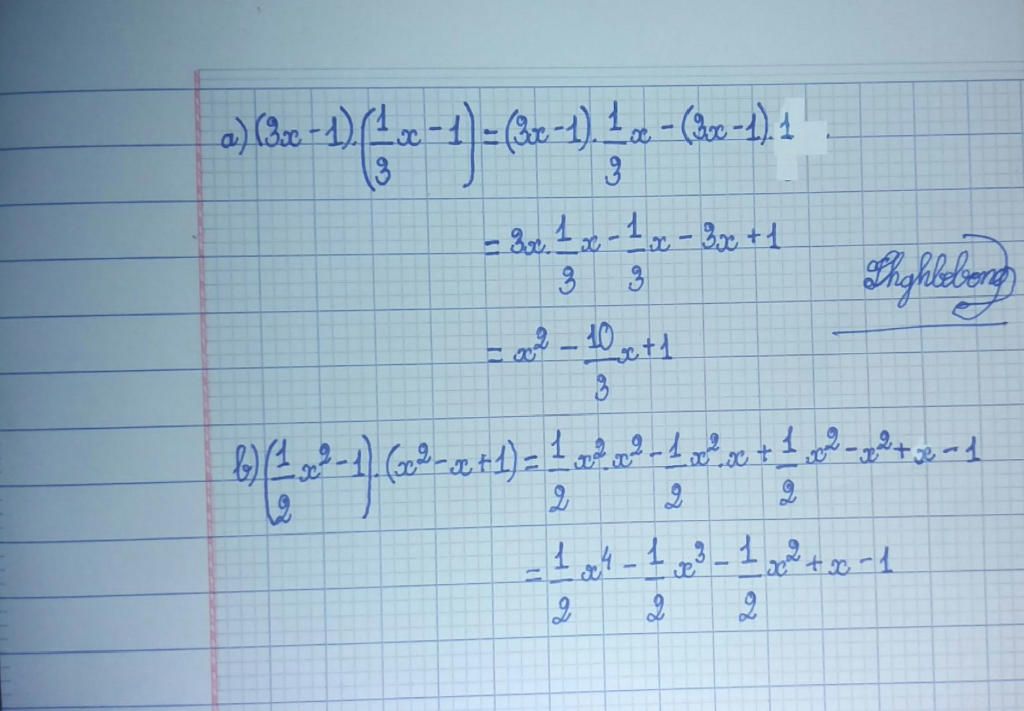 a) (3x - 1).(1/3 x - 1) = (3x - 1). 1/3 x - (3x - 1).1
= 3x. 1/3 x - 1/3 x - 3x + 1
= x² - 10/3 x + 1
b) (1/2 x² - 1).(x² - x + 1) = 1/2 x². x² - 1/2 x². x + 1/2 x² - x² + x - 1
= 1/2 x⁴ - 1/2 x³ - 1/2 x² + x - 1